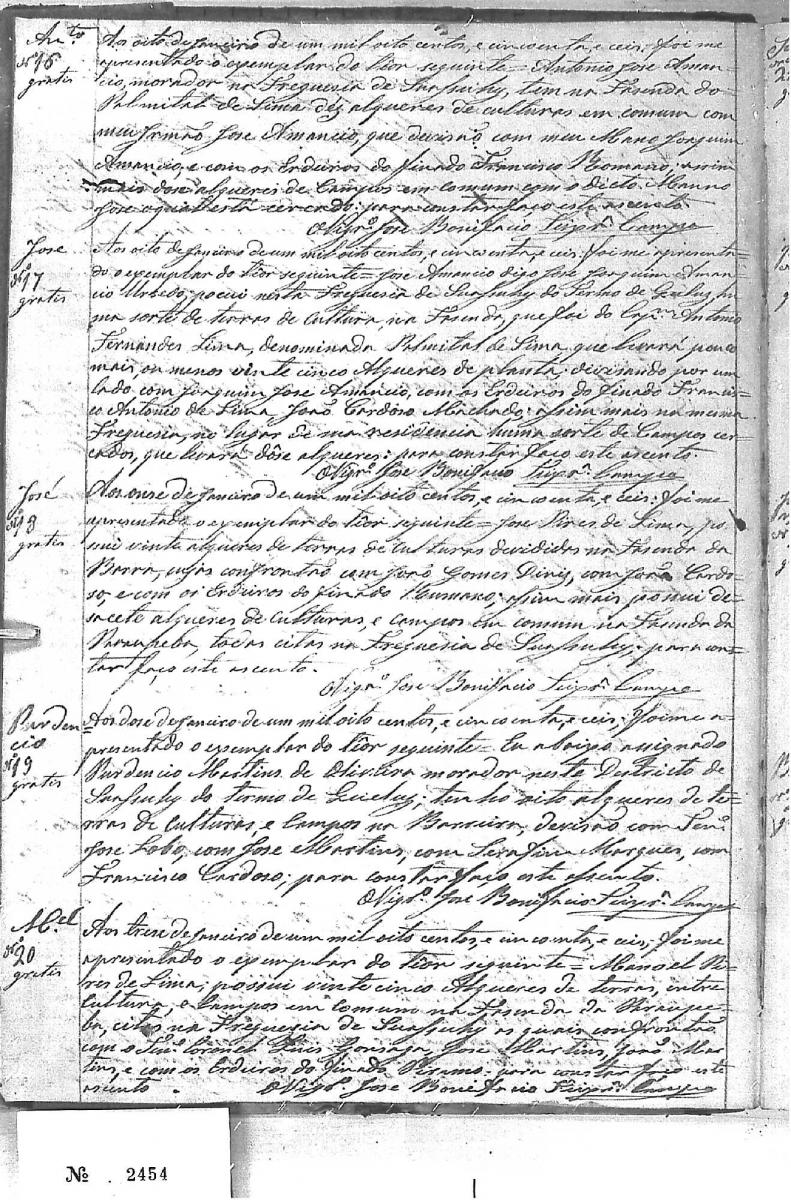 An.to
Nº 16
gratis
Aos oito de Janeiro de um mil oito centos, e cincoenta, e ceis; foi me
apresentado o exemplar do tior seguinte = Antonio Jose Aman-
cio, morador na Freguesia de Suasuhy, tem na Fasenda do
Palmital de Lima dez alqueres de culturas em comum com
meu Irmaõ Jose Amancio, que devisaõ com meu Mano Joaquim
Amancio, e com os Erdeiros do finado Francisco Romano; assim
mais dose alqueres de Campos em comum com o dicto Manno
Jose o qual está cercado: para constar faço este ascento.
O Vigr.º Jose Bonifacio
Jose
Nº 17
gratis
Aos oito de Janeiro de um mil oito centos, e cincoenta, e ceis; foi me apresenta-
do o exemplar do tior seguinte = Jose Amancio digo Jose Joaquim Aman-
cio posui nesta Freguesia de Suasuhy do Termo de Queluz, hu-
ma sorte de terras de Cultura, na Fasenda, que foi do Cap.m Antonio
Fernandes Lima, denominada Palmital de Lima que levará pouco
mais, ou menos vinte cinco Alqueres de planta; devisando por um
lado com Joaquim José Amancio, com os Erdeiros do finado Francis-
co Antonio de Lima Joaõ Cardoso Machado; assim mais na mesma
Freguesia, no lugar de ma residencia huma sorte de Campos cer-
cados, que levará dôse alqueres: para constar faço este ascento.
O Vigr.º Jose Bonifacio
José
Nº 18
gratis
Aos onse de Janeiro de um mil oito centos, e cincoenta, e ceis: foi me
apresentado o exemplar do tior seguinte = Jose Pires de Lima, po-
sui vinte alqueres de terras de Culturas devididas na Fasenda da
Barra, cujas confrontaõ com Joaõ Gomes Diniz, com Joaõ Cardo-
so, e com os Erdeiros do finado Romano; assim mais posui de-
sacete alqueres de Culturas, e Campos em comum na Fasenda da
Paraupeba, todas citas na Freguesia de Suasuhy: para cons-
tar faço este ascento.
O Vigr.º Jose Bonifacio
Purden-
cio
Nº 19
gratis
Aos dose de Janeiro de um mil oito centos, e cincoenta, e ceis; foi me a-
presentado o exemplar do tior seguinte = Eu abaixo assignado
Purdencio Martins de Oliveira morador neste Districto de
Suasuhy do termo de Queluz; tenho oito alqueres de ter-
ras de Culturas, e Campos na Barreira, devisaõ com
Jose Lobo, com Jose Martins, com Serafim Marques, com
Francisco Cardoso; para constar faço este ascento.
O Vigr.º Jose Bonifacio
M.el
Nº 20
gratis
Aos trese de Janeiro de um mil oito centos, e cincoenta, e ceis; foi me
apresentado o exemplar do tior seguinte = Manoel Pi-
res de Lima; possui vinte cinco Alqueres de terras, entre
Cultura, e Campos em comum na Fasenda da Paraupe-
ba, citas na Freguesia de Suasuhy as quais confrontaõ
com o Coronel Luis Gonsaga Jose Martins, Joaõ Mar-
tins, e com os Erdeiros do finado para constar faço este
ascento. O Vigr.º Jose Bonifacio
Nº 2454